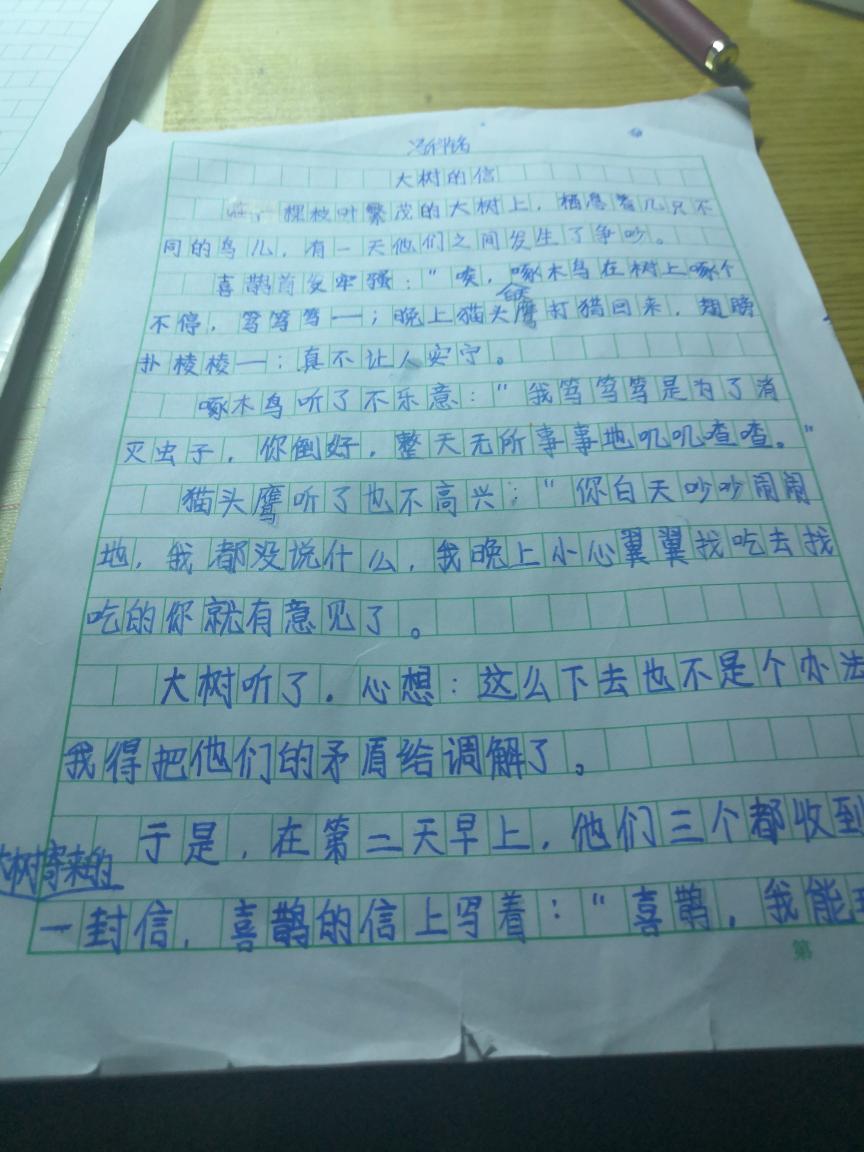 大树的信
在一棵枝叶繁茂的大树上，栖息着几只不
同的鸟儿，有一天他们之间发生了争吵。
喜鹊首发牢骚：“唉，啄木鸟在树上啄个
不停，笃笃笃一；晚上猫头鹰打猎回来，翅膀
扑棱棱一；真不让人安宁。
啄木鸟听了不乐意：“我笃笃笃是为了消
灭虫子，你倒好，整天无所事事地叽叽喳喳。”
猫头鹰听了也不高兴：“你白天吵吵闹闹
地，我都没说什么，我晚上小心翼翼找吃去找
吃的你就有意见了。
大树听了，心想：这么下去也不是个办法
我得把他们的矛盾给调解了。
于是，在第二天早上，他们三个都收到
大树寄来的
一封信，喜鹊的信上写着：“喜鹊，我能
第